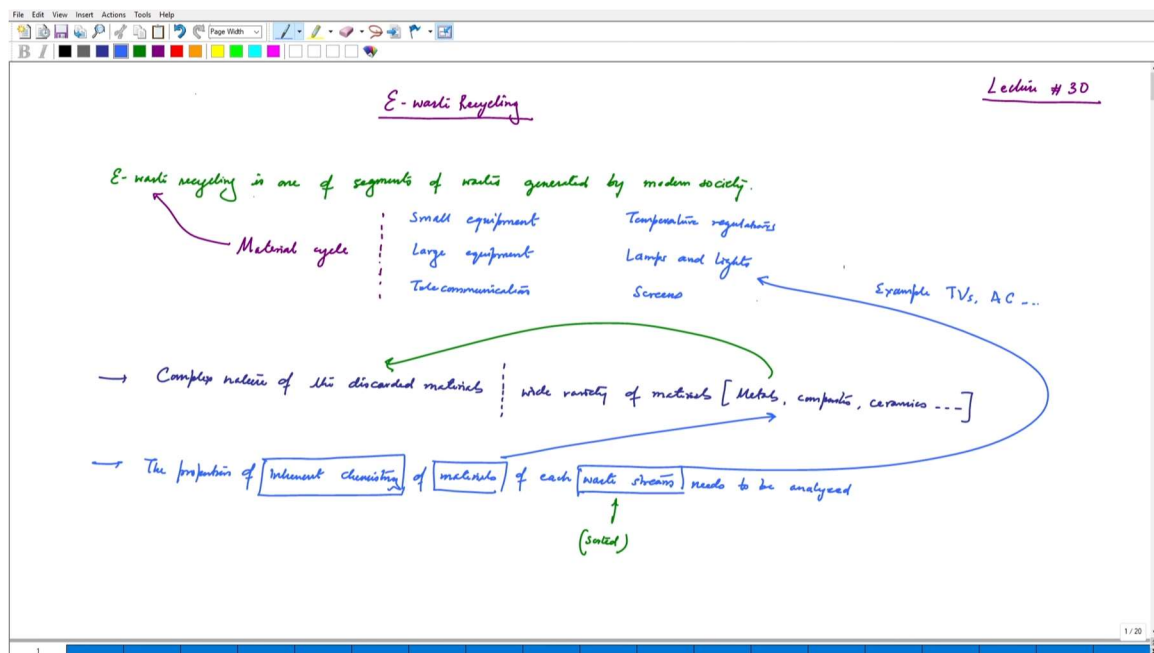 File Edit View Insert Actions Tools Help
Page Width
B I
Lecture # 30
E-waste Recycling
E-waste recycling is one of segments of wastes generated by modern society.
Material cycle
Small equipment
Large equipment
Telecommunication
Temperature regulators
Lamps and Lights
Screens
Example TVs, AC ...
→ Complex nature of the discarded materials
wide variety of materials [Metals, composites, ceramics ----]
→ The proportion of inherent chemistry of materials of each waste streams needs to be analyzed
(sorted)
1 / 20
1